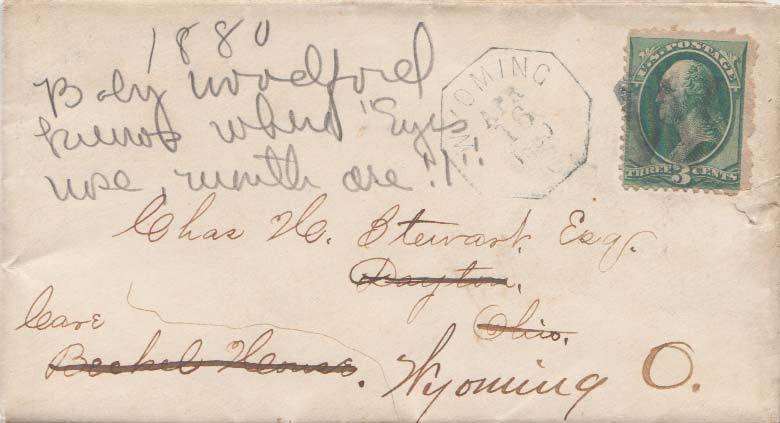 1880
Baby woodford
knows where "Eyes
nose, mouth are "!"
WYOMING
APR
16
U.S. POSTAGE
THREE 3 CENTS
Chas H. Stewart Esq.
Dayton,
Ohio.
Care
Beckel House.
Wyoming O.